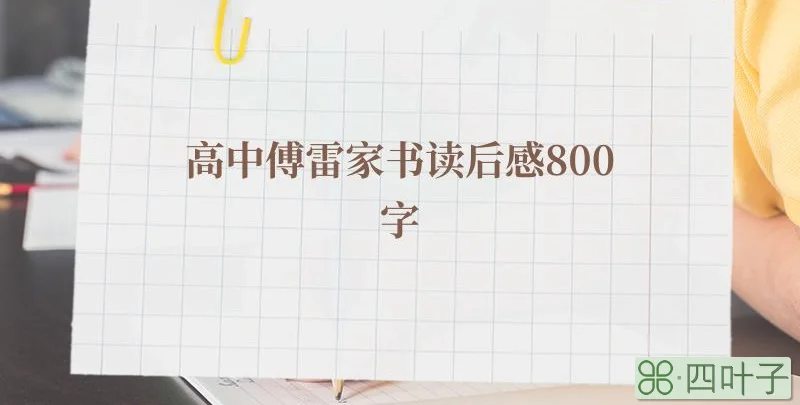 高中傅雷家书读后感800
字
四叶子